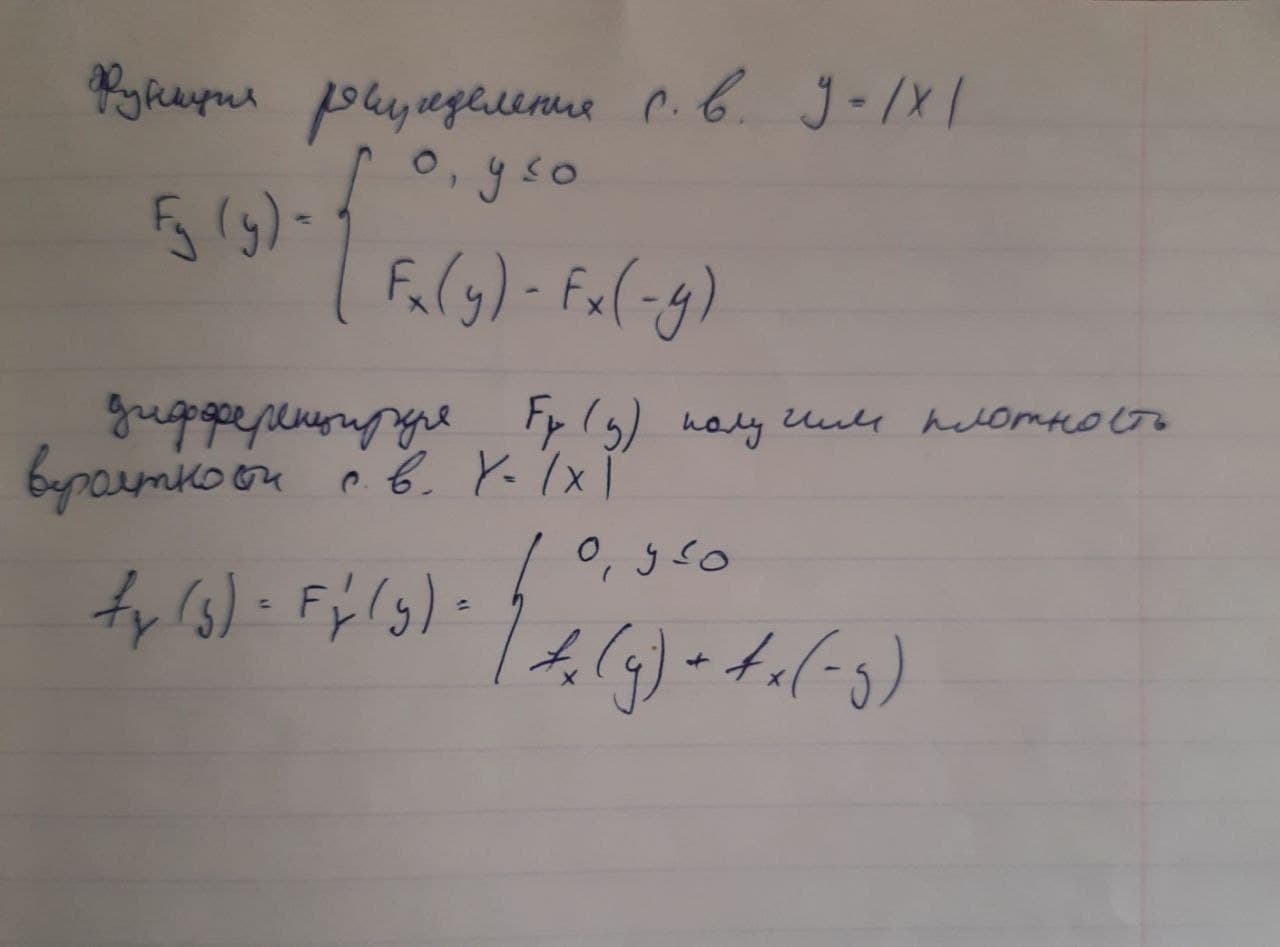 Функция распределения с. в. y = |X|
0, y ≤ 0
F_y (y) = {
F_x (y) - F_x (-y)
дифференцируя F_Y (y) получим плотность
вероятности с. в. Y = |X|
0, y ≤ 0
f_Y (y) = F_Y' (y) = {
f_x (y) + f_x (-y)